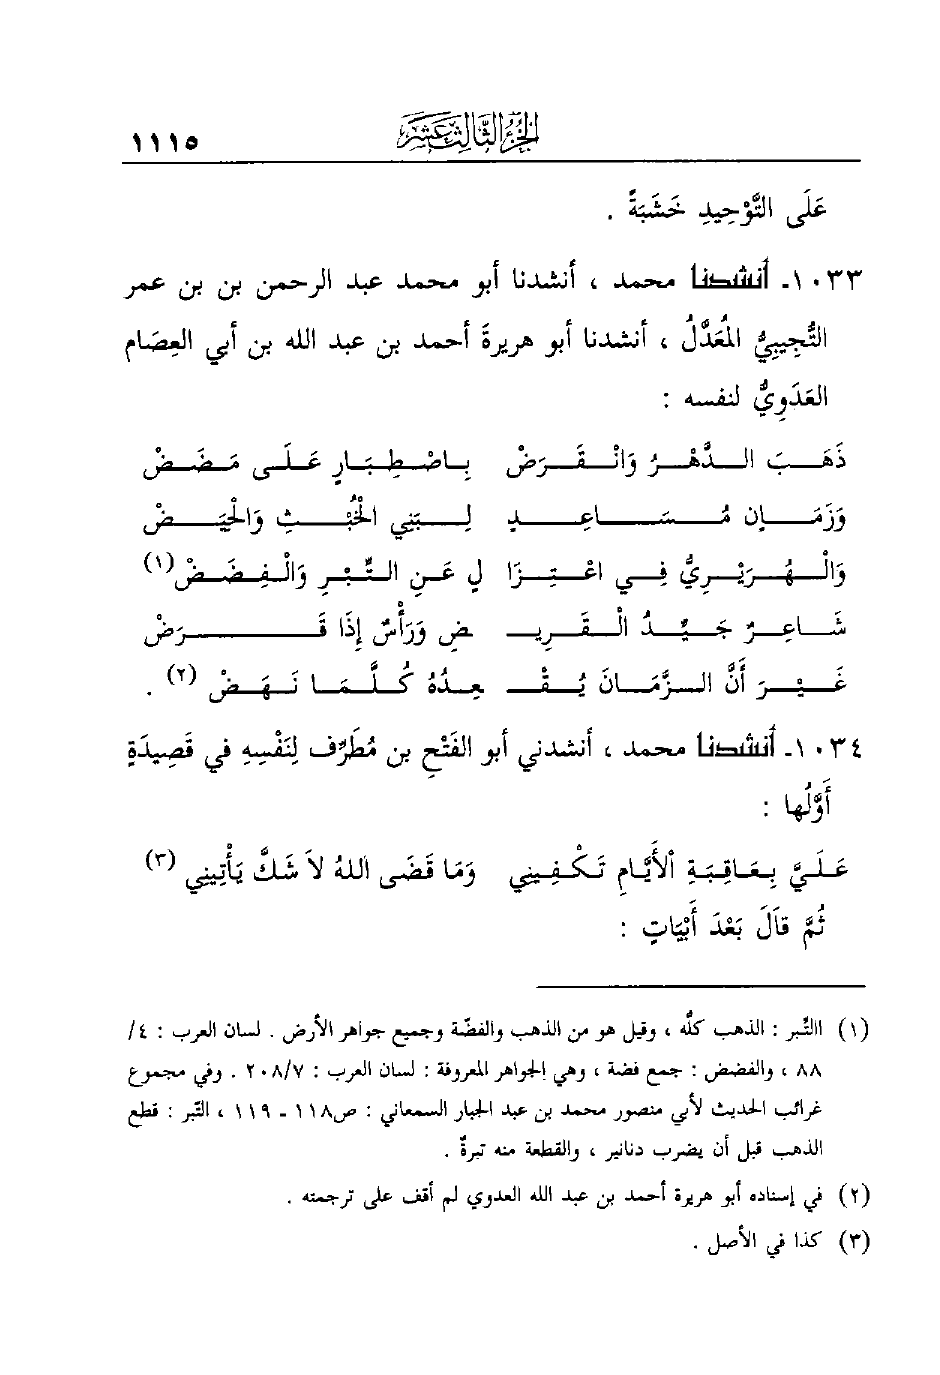 الجزء الثالث عشر ١١١٥
عَلَى التَّوْحِيدِ خَشَبَةً .
١٠٣٣ـ أنشدنا محمد ، أنشدنا أبو محمد عبد الرحمن بن بن عمر
التُّجِيبِيُّ المُعَدَّلُ ، أنشدنا أبو هريرةَ أحمد بن عبد الله بن أبي العِصَام
العَدَوِيُّ لنفسه :
ذَهَبَ الدَّهْرُ وَانْقَرَضْ بِاصْطِبَارٍ عَلَى مَضَضْ
وَزَمَانٍ مُسَاعِدٍ لِبَنِي الْخُبْثِ وَالْحَيَضْ
وَالْهُرَيْرِيُّ فِي اعْتِزَا لٍ عَنِ التِّبْرِ وَالْفِضَضْ(١)
شَاعِرٌ جَيِّدُ الْقَرِيـ ـضِ وَرَأْسٌ إِذَا قَرَضْ
غَيْرَ أَنَّ الزَّمَانَ يُقْـ ـعِدُهُ كُلَّمَا نَهَضْ (٢) .
١٠٣٤ـ أنشدنا محمد ، أنشدني أبو الفَتْحِ بن مُطَرِّف لِنَفْسِهِ في قَصِيدَةٍ
أَوَّلُها :
عَلَيَّ بِعَاقِبَةِ اْلأَيَّامِ تَكْفِينِي وَمَا قَضَى اللهُ لاَ شَكَّ يَأْتِينِي (٣)
ثُمَّ قاَلَ بَعْدَ أَبْيَاتٍ :
(١) االتِّبر : الذهب كلُّه ، وقيل هو من الذهب والفضّة وجميع جواهر الأرض . لسان العرب : ٤/
٨٨ ، والفضض : جمع فضة ، وهي الجواهر المعروفة : لسان العرب : ٢٠٨/٧ . وفي مجموع
غرائب الحديث لأبي منصور محمد بن عبد الجبار السمعاني : ص١١٨ ـ ١١٩ ، التّبر : قطع
الذهب قبل أن يضرب دنانير ، والقطعة منه تبرةٌ .
(٢) في إسناده أبو هريرة أحمد بن عبد الله العدوي لم أقف على ترجمته .
(٣) كذا في الأصل .